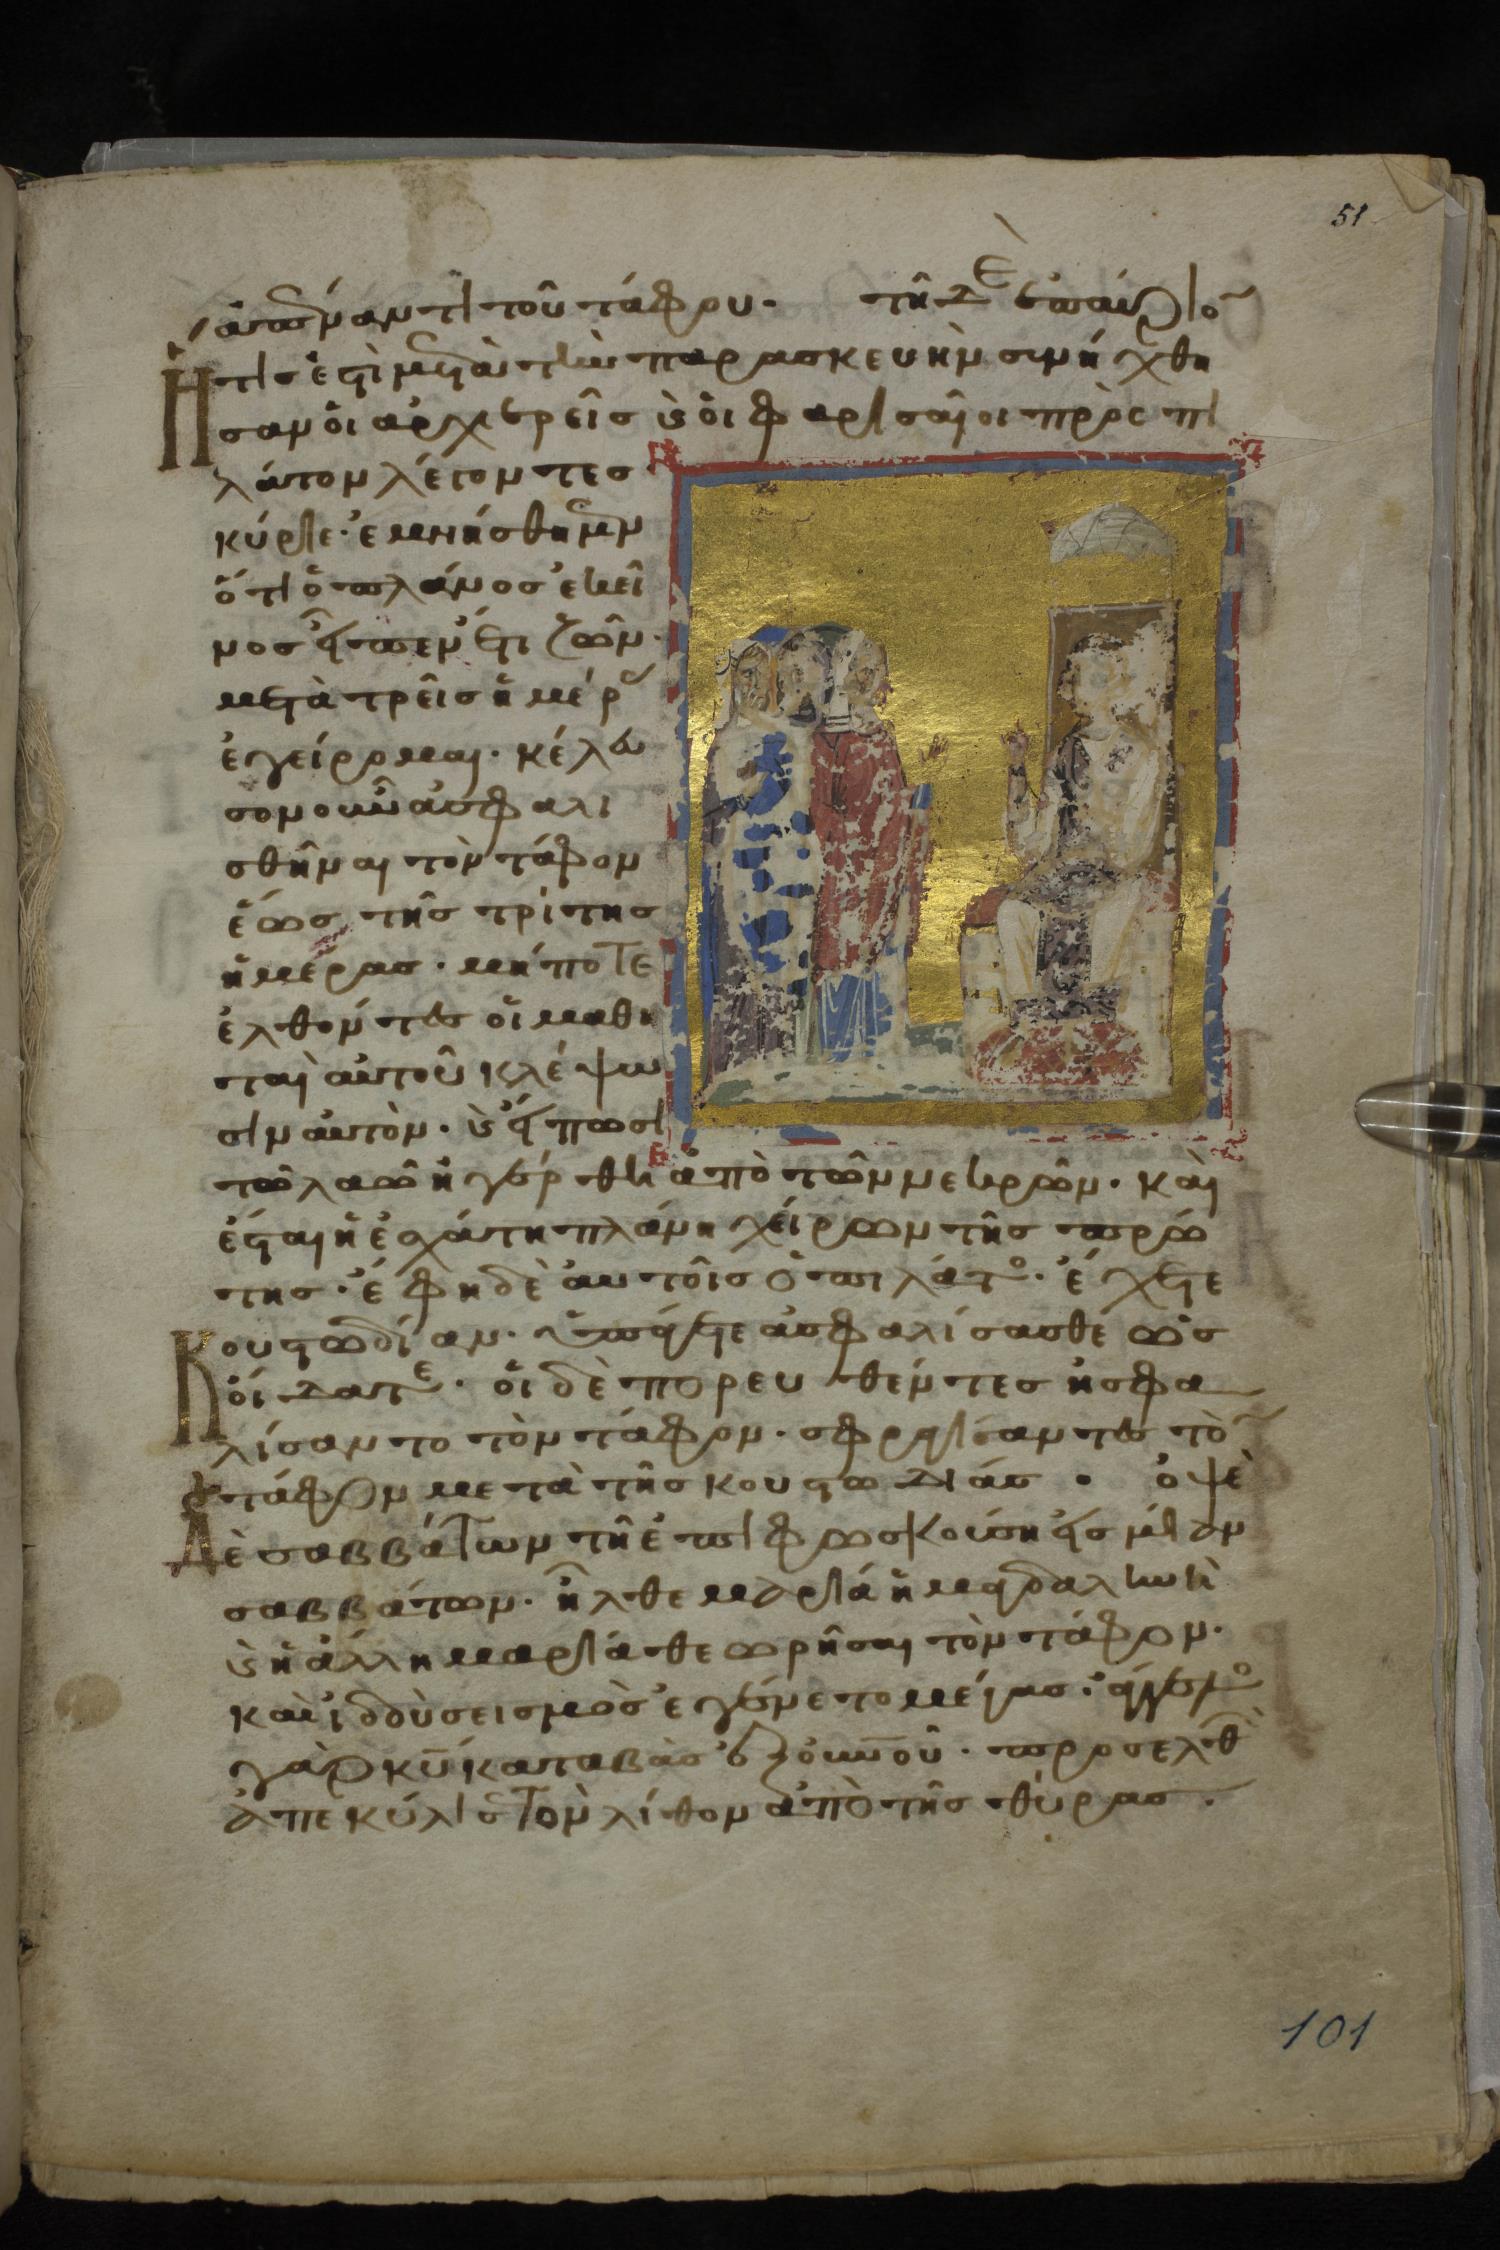 51
ἀπέναντι τοῦ τάφου· τῇ δὲ ἐπαύριον
ἥτις ἐστὶ μετὰ τὴν παρασκευὴν συνήχθη
σαν οἱ ἀρχιερεῖς κ̀ οἱ φαρισαῖοι πρὸς πι
λάτον λέγοντες
κύριε· ἐμνήσθημεν
ὅτι ὁ πλάνος ἐκεῖ
νος εἶπεν ἔτι ζῶν·
μετὰ τρεῖς ἡμέρας
ἐγείρομαι· κέλευ
σον οὖν ἀσφαλι
σθῆναι τὸν τάφον
ἕως τῆς τρίτης
ἡμέρας· μήποτε
ἐλθόντες οἱ μαθη
ταὶ αὐτοῦ κλέψω
σιν αὐτὸν· κ̀ εἴπωσι
τῶ λαῶ ἠγέρθη ἀπὸ τῶν νεκρῶν· καὶ
ἔσται ἡ ἐσχάτη πλάνη χείρων τῆς πρώ
της· ἔφη δὲ αὐτοῖς ὁ πιλάτος· ἔχετε
κουστωδίαν· ὑπάγετε ἀσφαλίσασθε ὡς
οἴδατε· οἱ δὲ πορευθέντες ἠσφα
λίσαντο τὸν τάφον· σφραγίσαντες τὸν
τάφον μετὰ τῆς κουστωδίας · ὀψὲ
δὲ σαββάτων τῇ ἐπιφωσκούσῃ εἰς μίαν
σαββάτων· ἦλθε μαρία ἡ μαγδαληνὴ
κ̀ ἡ ἄλλη μαρία θεωρῆσαι τὸν τάφον·
καὶ ἰδοὺ σεισμὸς ἐγένετο μέγας· ἄγγελος
γὰρ κ̅υ̅ καταβὰς ἐξ ο̅υ̅ν̅ο̅ῦ̅· προσελθὼν
ἀπεκύλισε τὸν λίθον ἀπὸ τῆς θύρας·
101